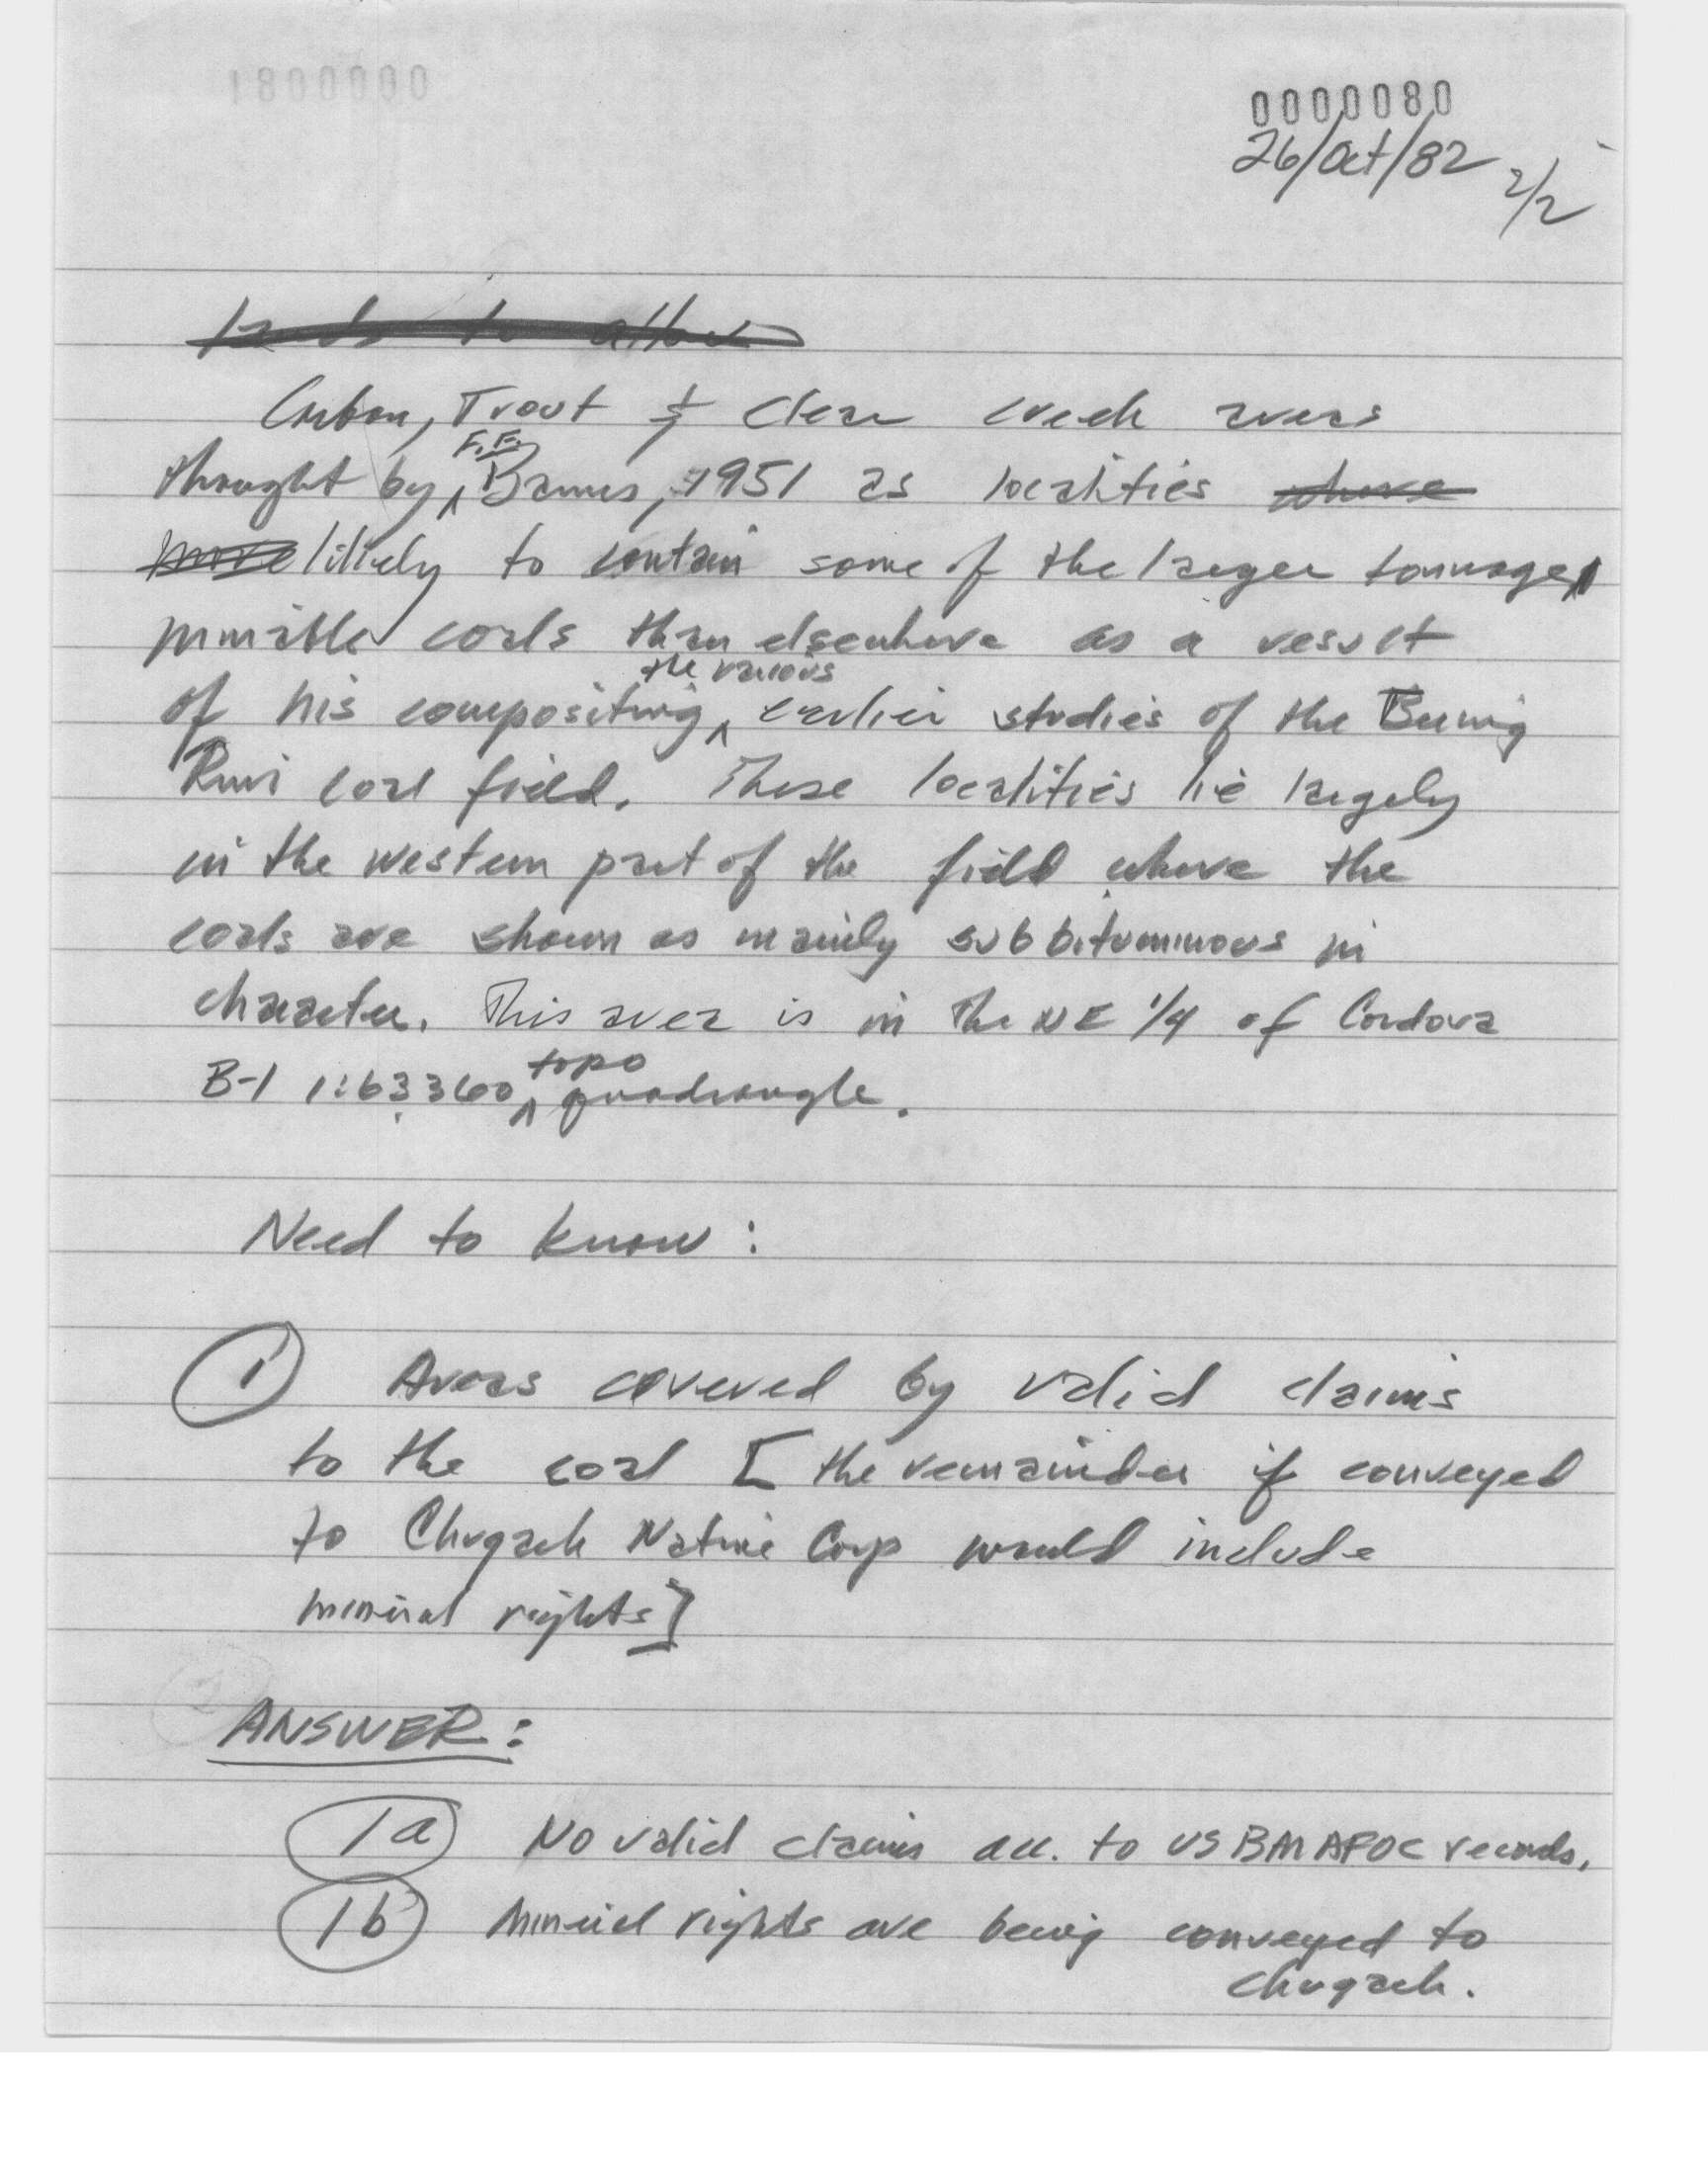 1800000
0000080
26/Oct/82 2/2
Carbon, Trout & Clear Creek areas
F.F.
thought by Barnes, 1951 as localities where
more likely to contain some of the larger tonnages
minable coals than elsewhere as a result
the various
of his compositing earlier studies of the Bering
River coal field. These localities lie largely
in the western part of the field where the
coals are shown as mainly subbituminous in
character. This area is in the NE 1/4 of Cordova
topo
B-1 1:63360 quadrangle.
Need to know:
1 Areas covered by valid claims
to the coal [the remainder if conveyed
to Chugach Native Corp would include
mineral rights]
ANSWER:
1a No valid claims acc. to USBM AFOC records.
1b Mineral rights are being conveyed to
Chugach.